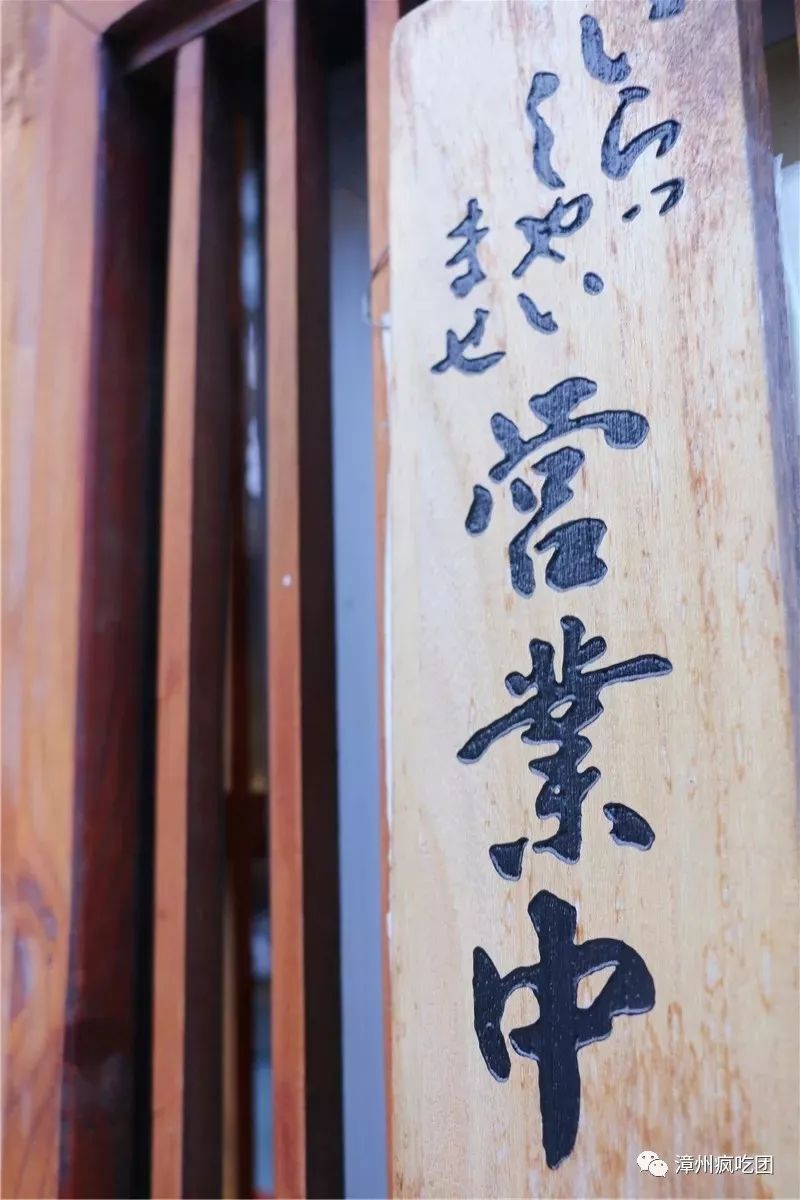 いらっ
しゃい
ませ
営業中
漳州疯吃团